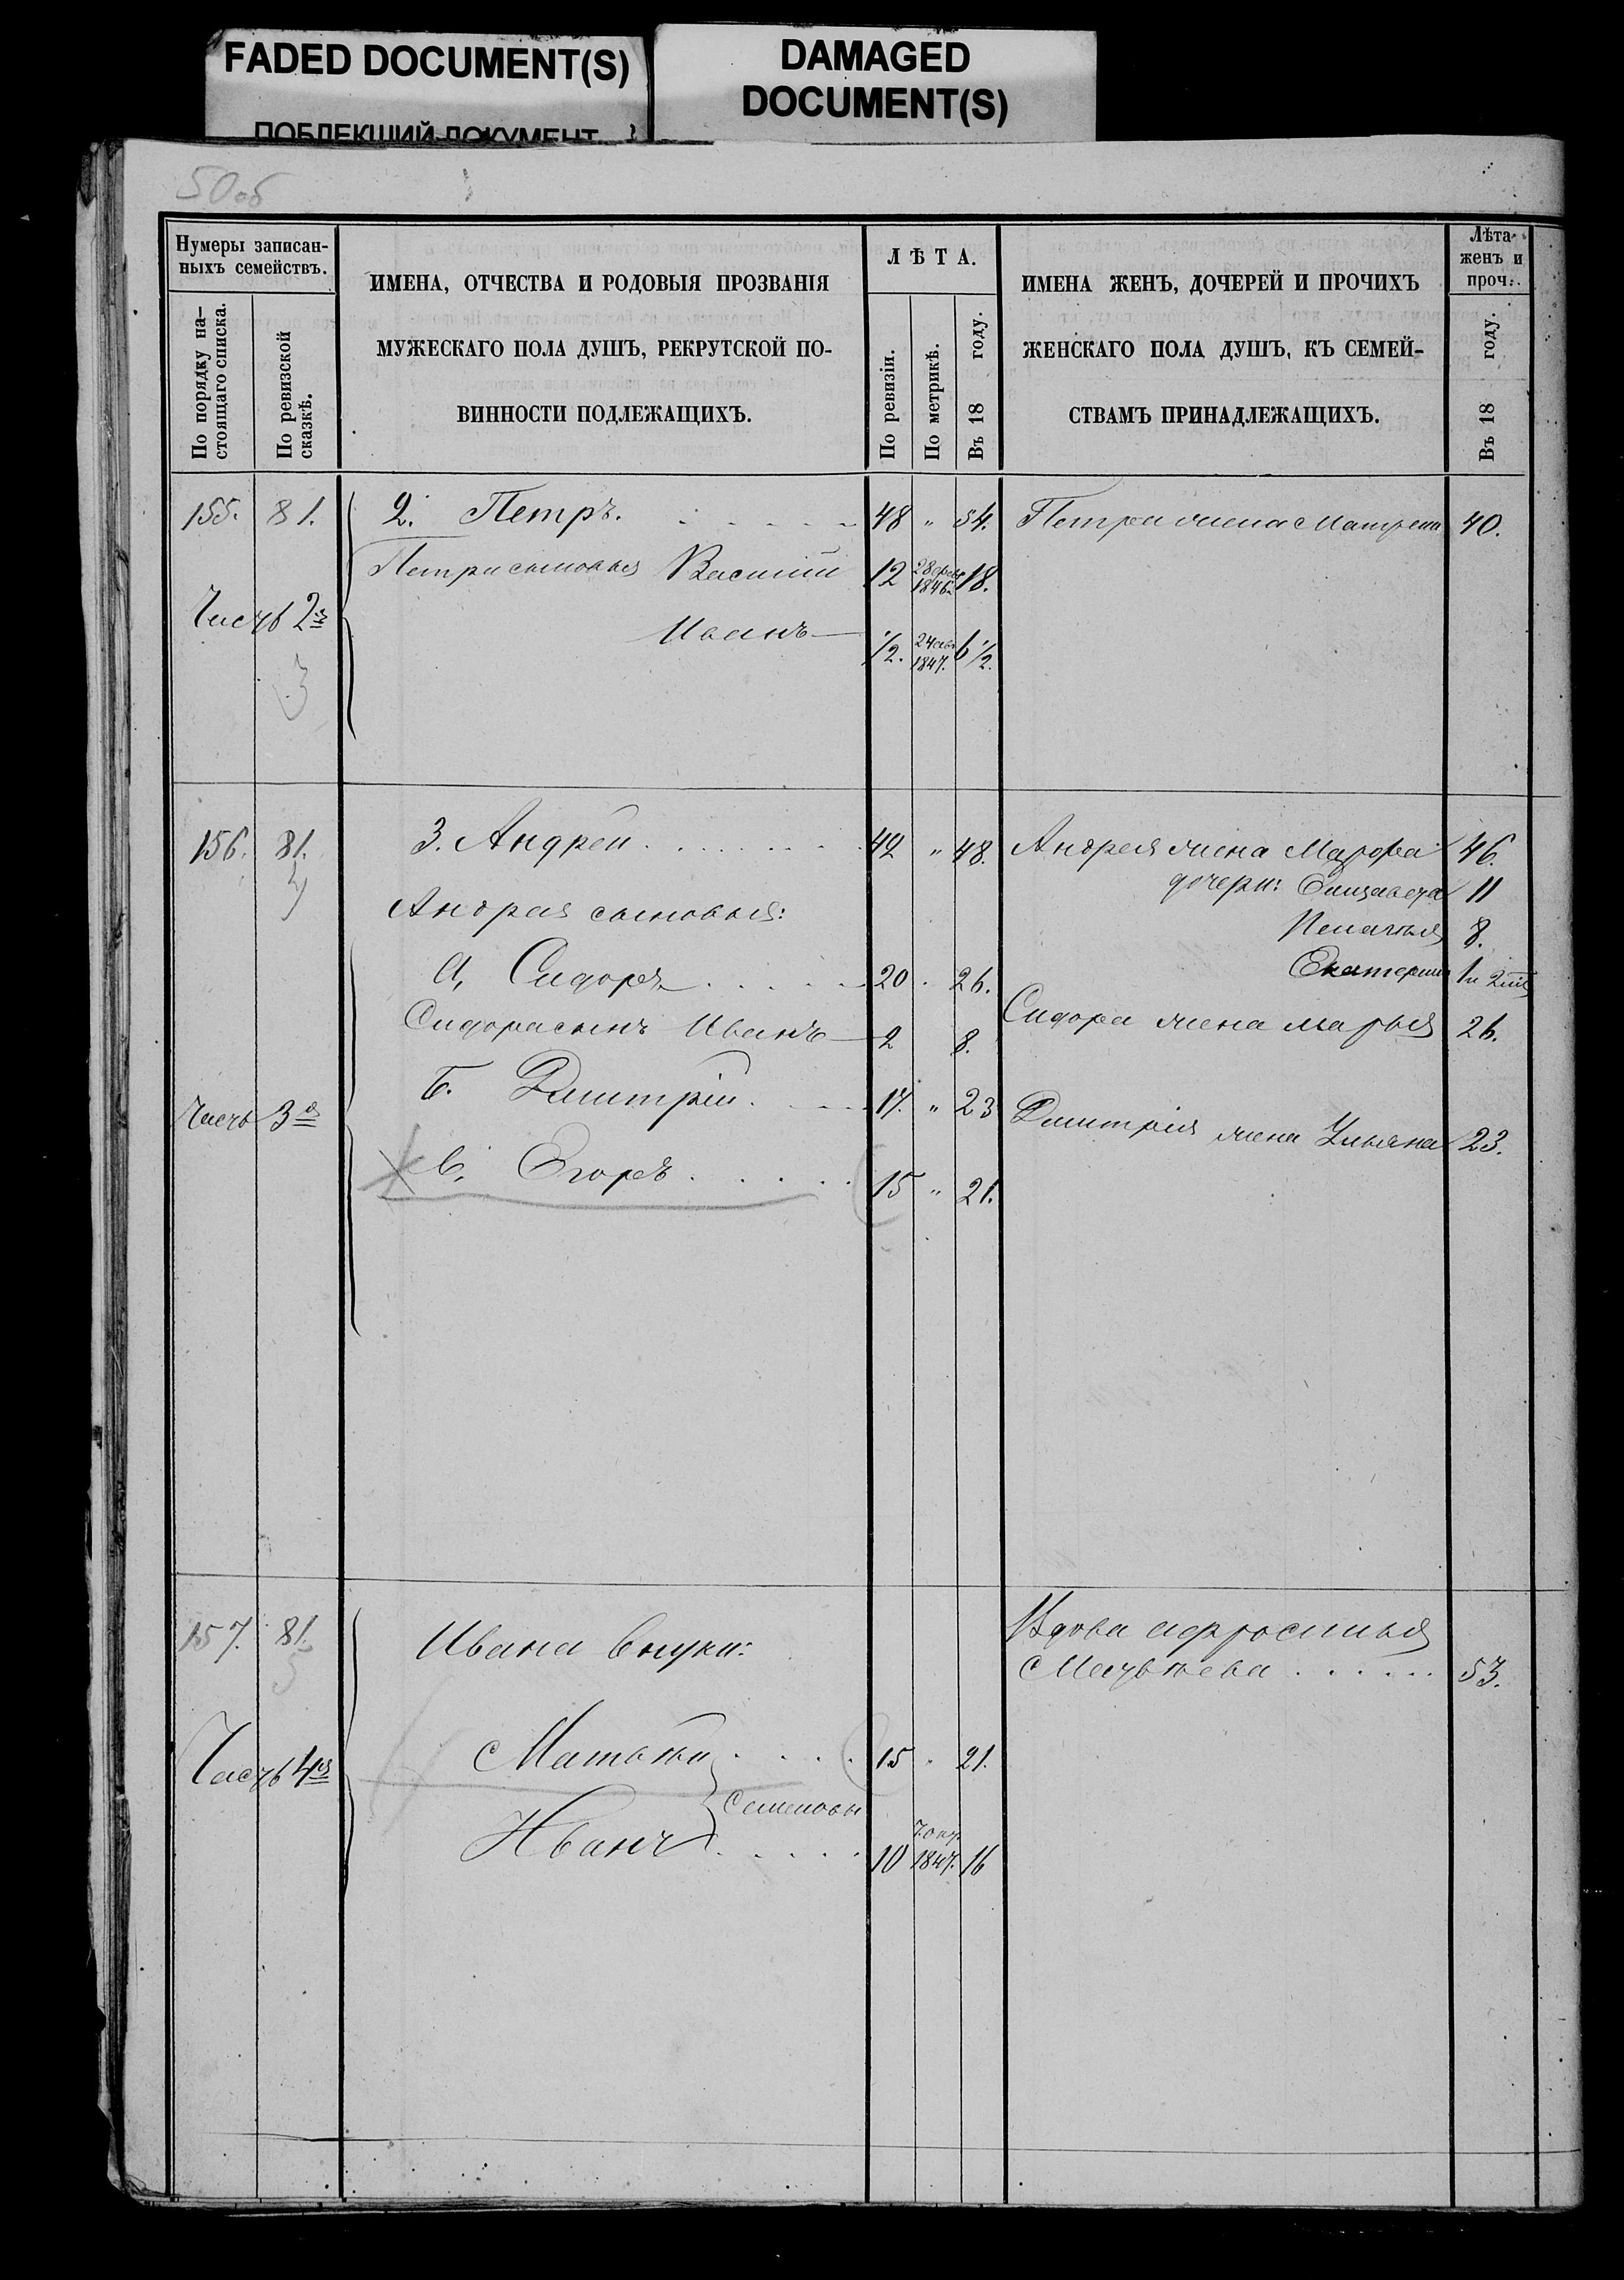 FADED DOCUMENT(S)
DAMAGED
DOCUMENT(S)
ПОБЛЕКШИЙ ДОКУМЕНТ
50об
Нумеры записан-
ныхъ семействъ.
По порядку на-
стоящаго списка.
По ревизской
сказкѣ.
ИМЕНА, ОТЧЕСТВА И РОДОВЫЯ ПРОЗВАНІЯ
МУЖЕСКАГО ПОЛА ДУШЪ, РЕКРУТСКОЙ ПО-
ВИННОСТИ ПОДЛЕЖАЩИХЪ.
ЛѢТА.
По ревизіи.
По метрикѣ.
Въ 18 году.
ИМЕНА ЖЕНЪ, ДОЧЕРЕЙ И ПРОЧИХЪ
ЖЕНСКАГО ПОЛА ДУШЪ, КЪ СЕМЕЙ-
СТВАМЪ ПРИНАДЛЕЖАЩИХЪ.
Лѣта
женъ и
проч.
Въ 18 году.
155. 81. 2. Петръ. 48 " 54. Петра жена Матрена 40.
Петра сыновья Василий 12 1846 18.
Часть 2я
Иванъ 1/2. 1847. 6 1/2.
3
156. 81. 3. Андрей 42 " 48. Андрея жена Марфа 46.
4
дочери: Елизавета 11
Андрея сыновья:
Пелагия 8.
Екатерина 1
а, Сидоръ 20 26.
Сидора жена Марья 26.
Сидора сынъ Иванъ 2 8.
Б. Дмитрій 17. " 23 Дмитрія жена Ульяна 23.
Часть 3я
в, Егоръ 15 " 21.
157. 81. Ивана внуки: Вдова Афросинья
5
Матвѣева 53.
Часть 4я
Матвѣй 15 " 21.
Семеновы
Иванъ 10 1847. 16